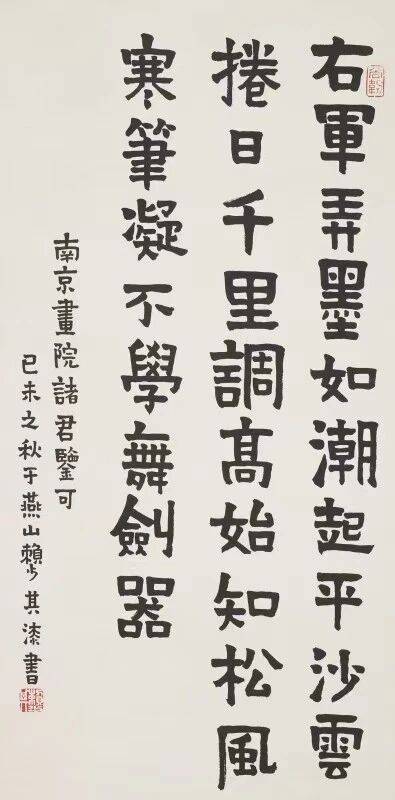 右軍弄墨如潮起平沙雲
捲日千里調髙始知松風
寒筆凝不學舞劍器
南京畫院諸君鑒可
己未之秋于燕山賴少其漆書